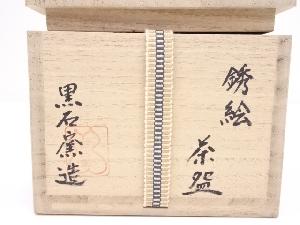 銹絵
茶盌
黒石窯造